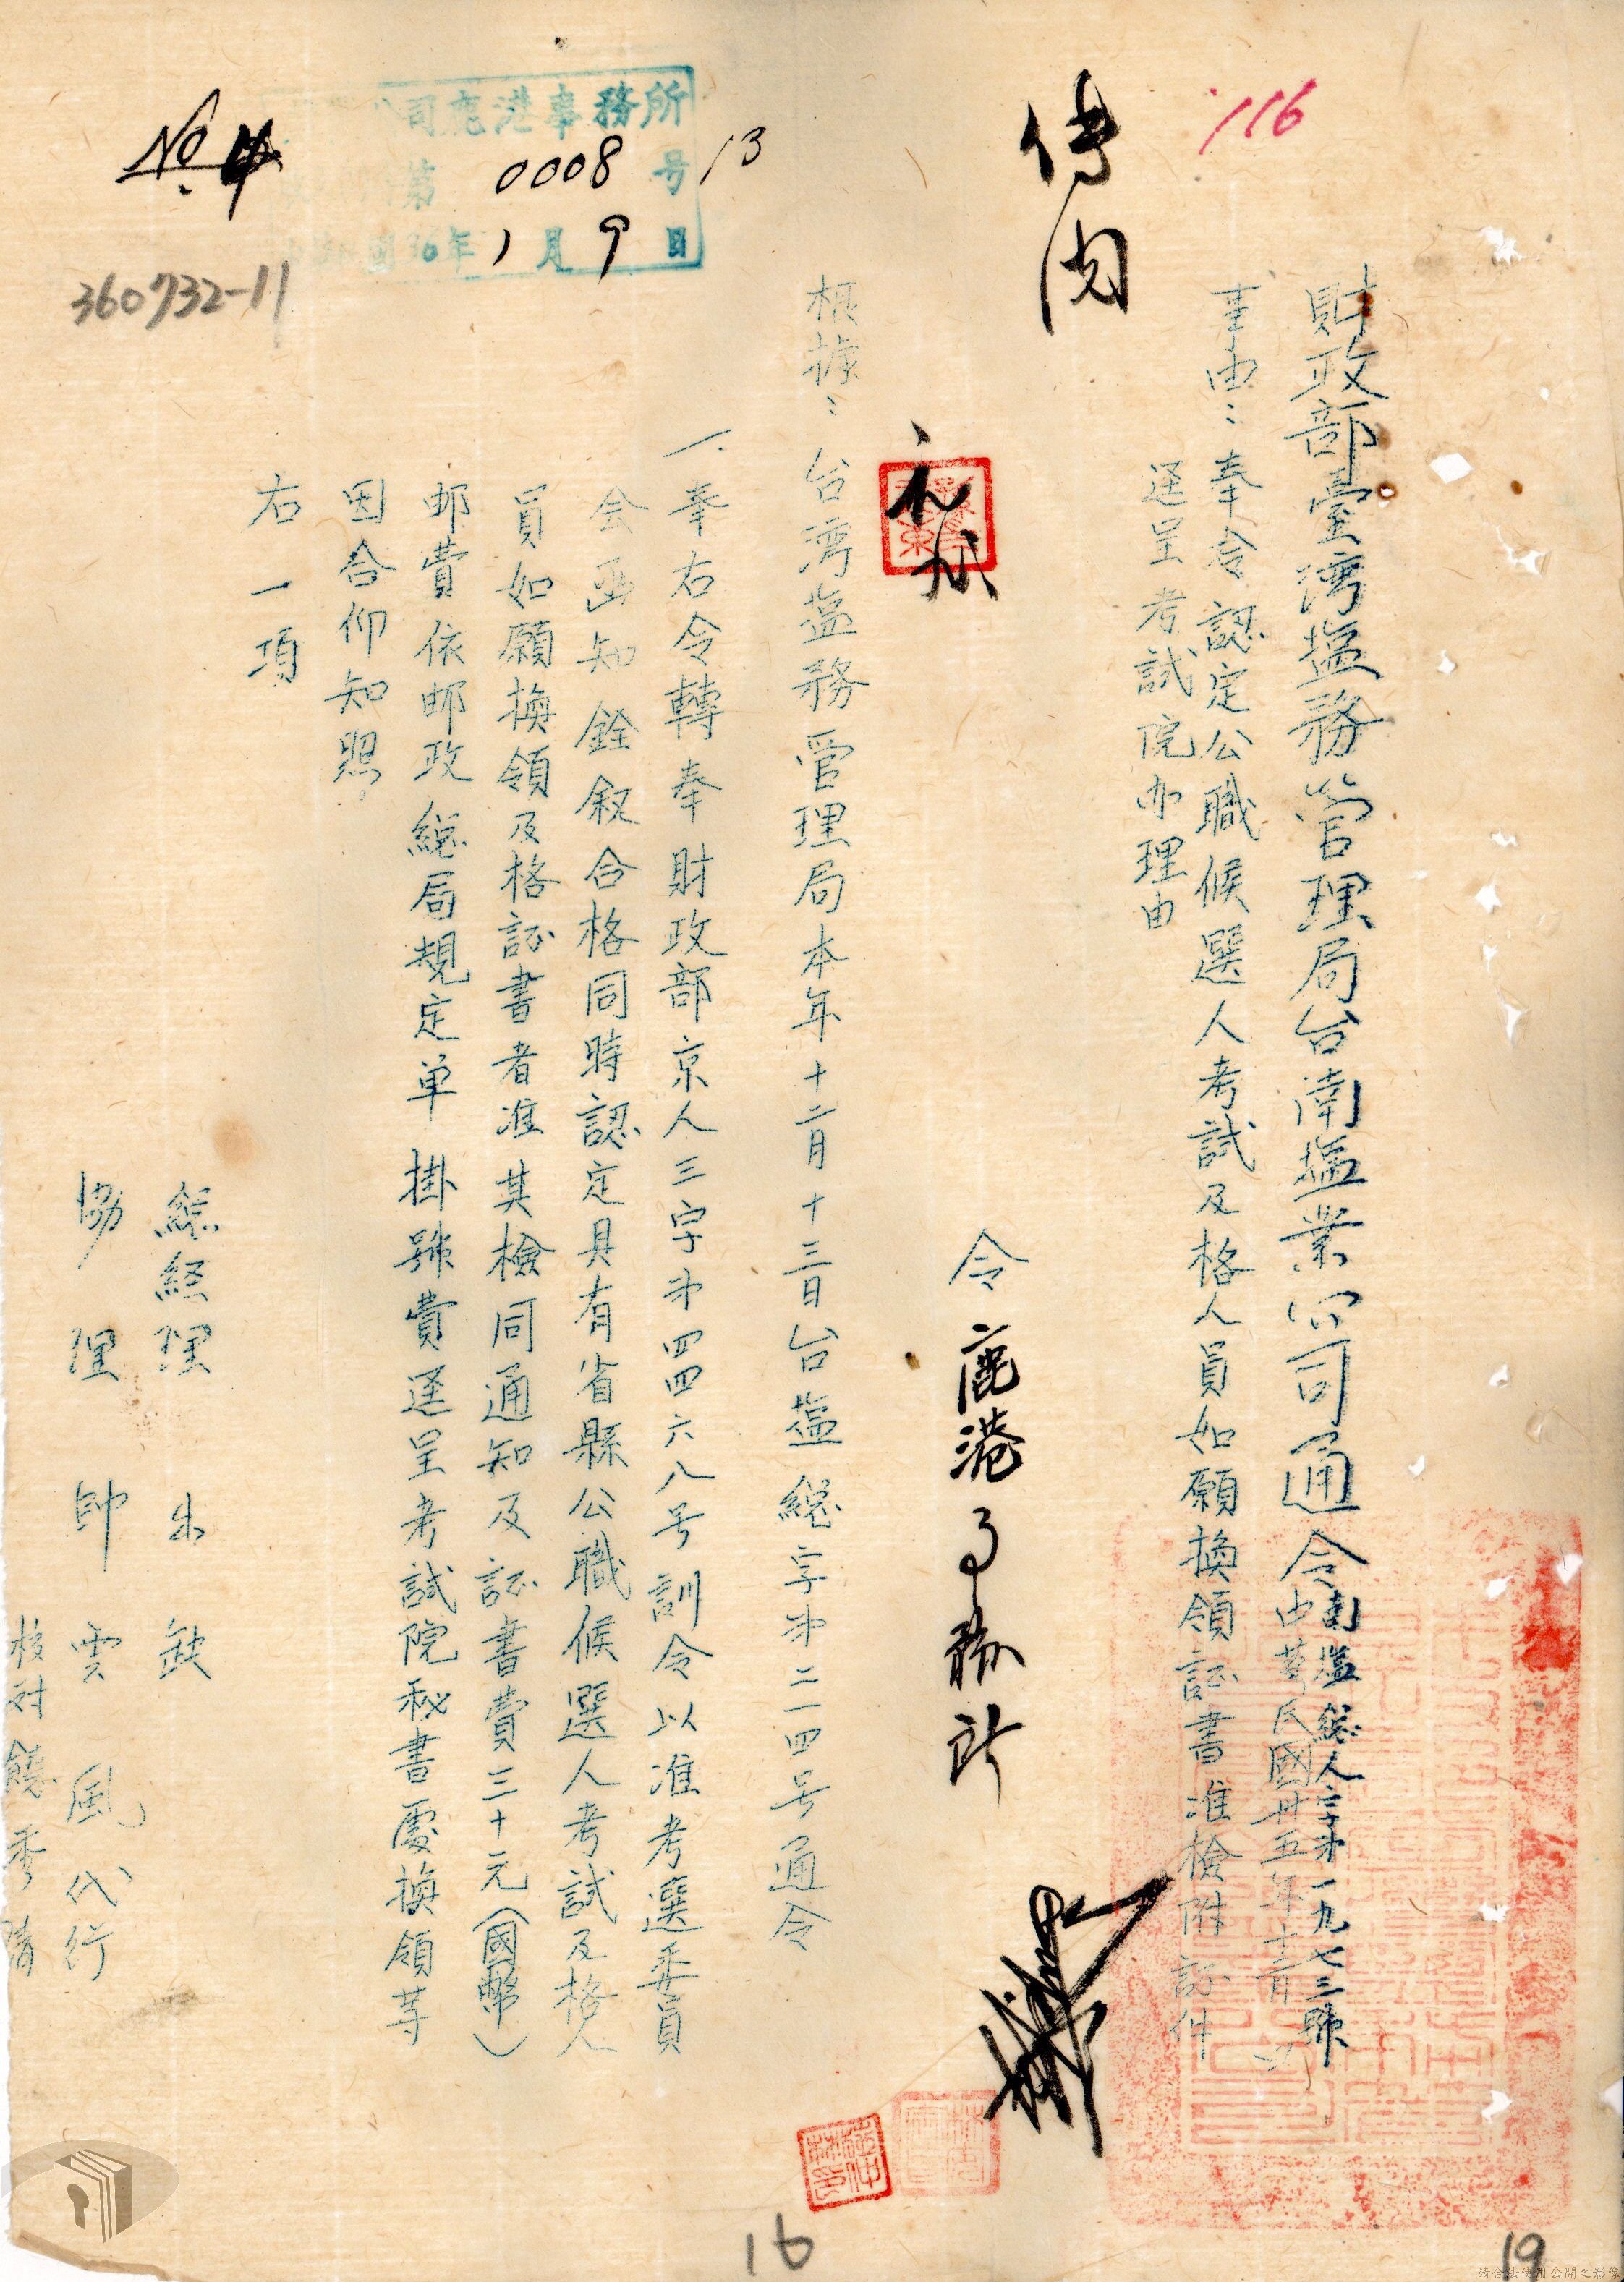 116
傳閱
財政部臺湾塩務管理局台南塩業公司通令
南塩總人字第一九七三號
中華民國卅五年十二月
事由：奉令認定公職候選人考試及格人員如願換領証書准檢附証件
逕呈考試院办理由
令 鹿港事務所
根據：台湾塩務管理局本年十二月十三日台塩總字第二一四号通令
一、奉右令轉奉財政部京人三字第四四六八号訓令以准考選委員
会函知銓叙合格同時認定具有省縣公職候選人考試及格人
員如願換領及格証書者准其檢同通知及証書費三十元（國幣）
邮費依邮政總局規定单掛號費逕呈考試院秘書處換領等
因合仰知照
右一項
總經理 出缺
協理 帥雲風代行
校对 饒秀
司鹿港事務所
第 0008 号
國36年1月9日
13
No. 4
360732-11
16
19
請合法使用公開之影像